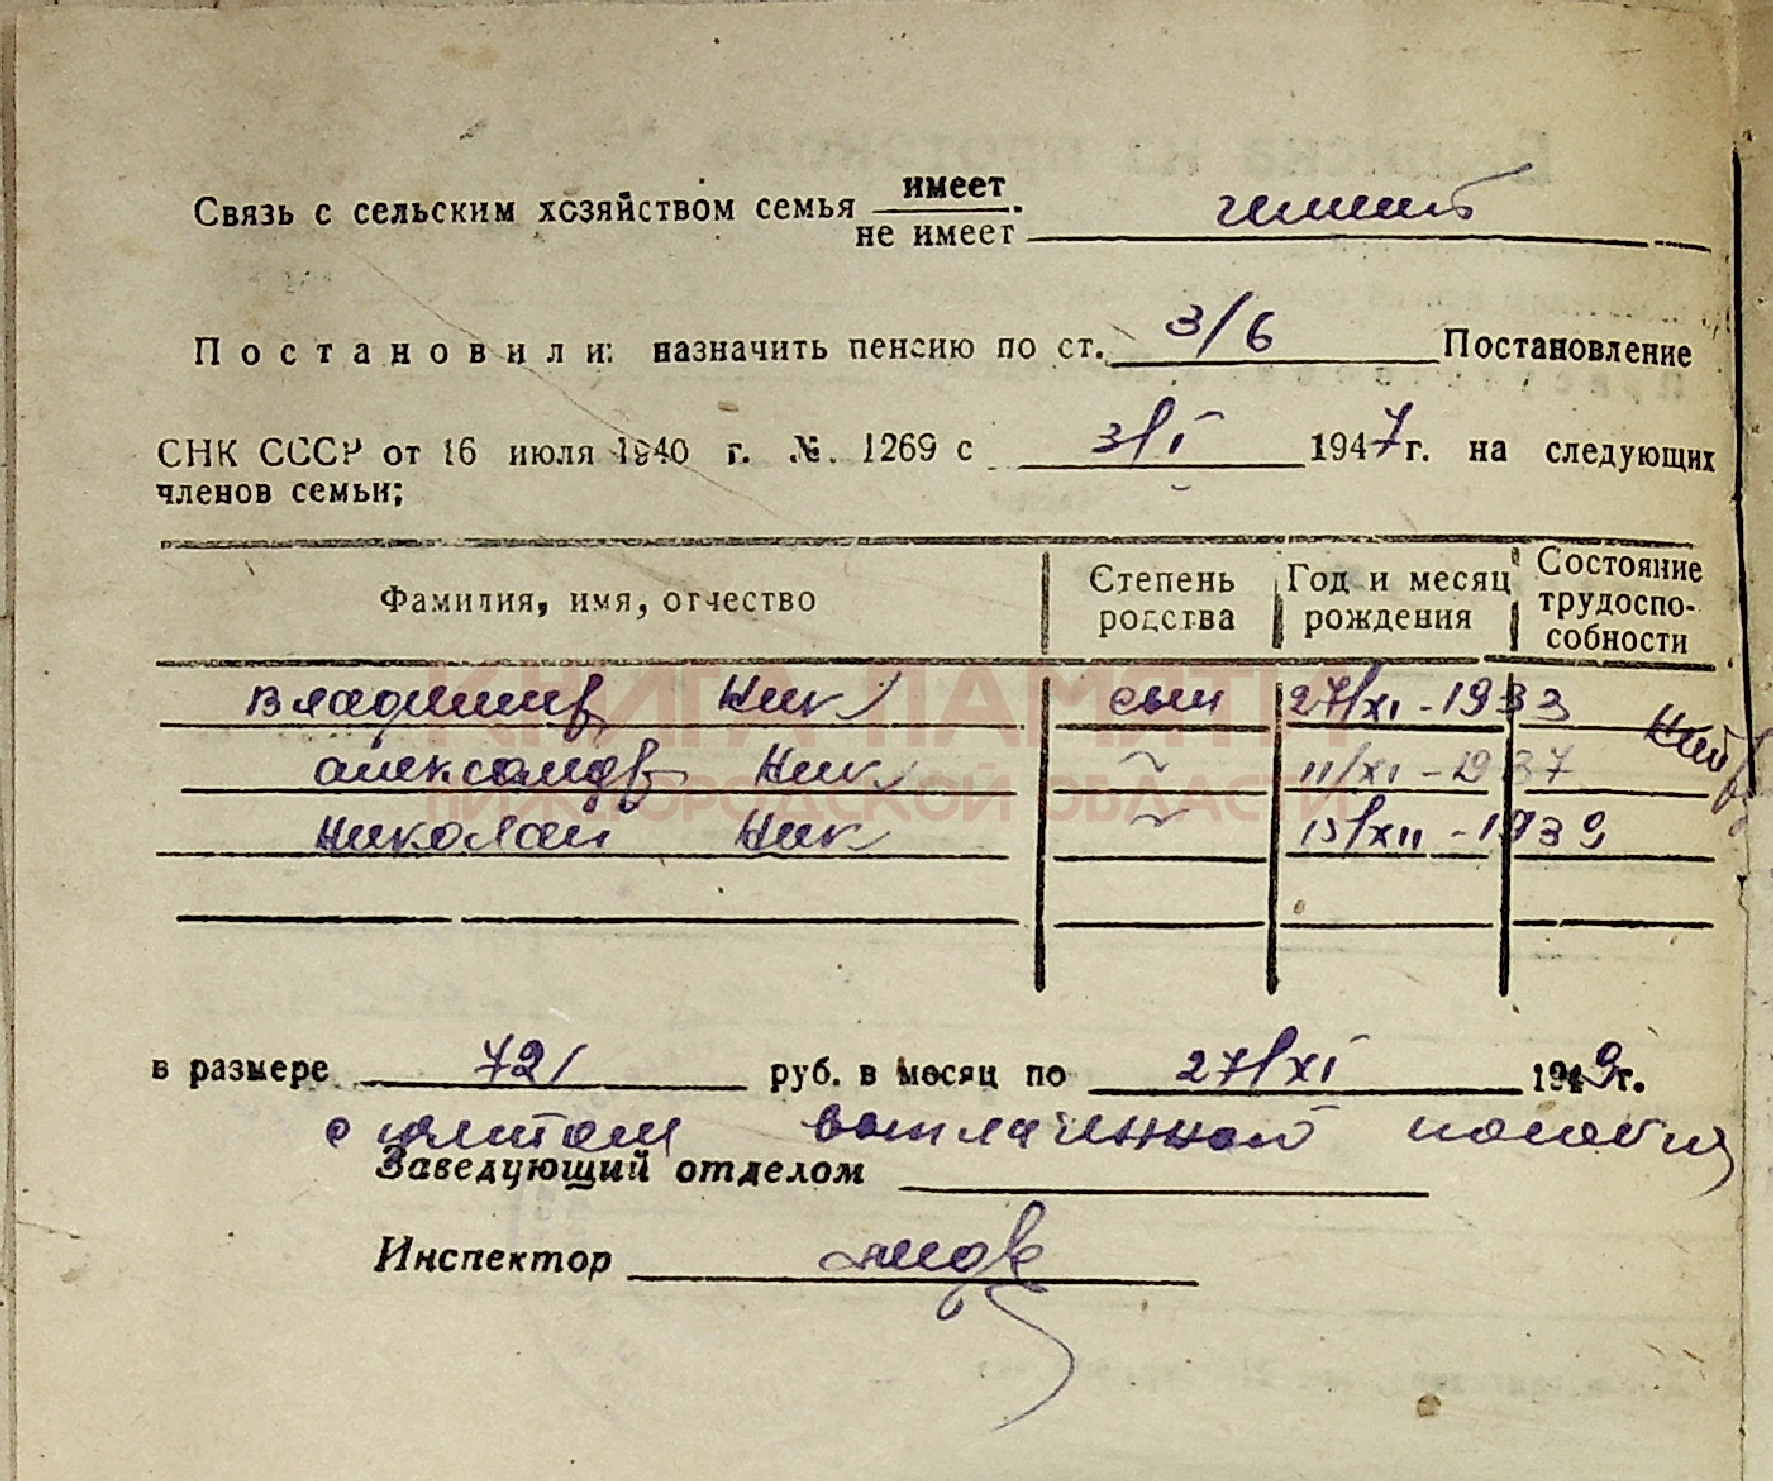 Связь с сельским хозяйством семья имеет / не имеет имеет
Постановили: назначить пенсию по ст. 3/б Постановление
СНК СССР от 16 июля 1940 г. №. 1269 с 3/I 1947 г. на следующих
членов семьи;
Фамилия, имя, отчество Степень родства Год и месяц рождения Состояние трудоспо-собности
Владимир Ник сын 27/XI - 1933
Александр Ник ~ 11/XI - 1937
Николай Ник ~ 15/XII - 1939
КНИГА ПАМЯТИ
НИЖЕГОРОДСКОЙ ОБЛАСТИ
в размере 72/ руб. в месяц по 27/XI 1949 г.
с учетом выплаченной пособия
Заведующий отделом
Инспектор